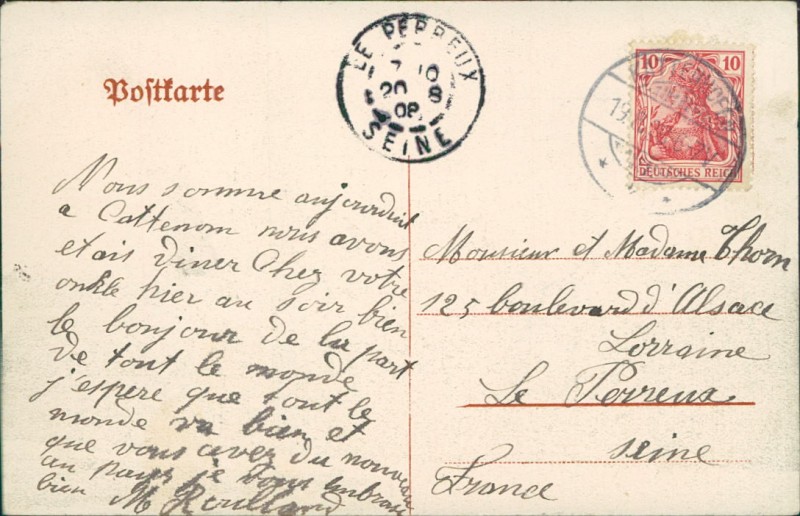 Postkarte
LE PERREUX
7 10
20 8
08
SEINE
10 10
DEUTSCHES REICH
19
Nous somme aujourduit
a Cattenom nous avons
etais diner Chez votre
onkle hier au soir bien
le bonjour de la part
de tout le monde
j'espere que tout le
monde va bien et
que vous avez du nouveau
au pays je vous embrasse
bien M Roulland
Monsieur et Madame Thorn
125 boulevard d'Alsace
Lorraine
Le Perreux
seine
France